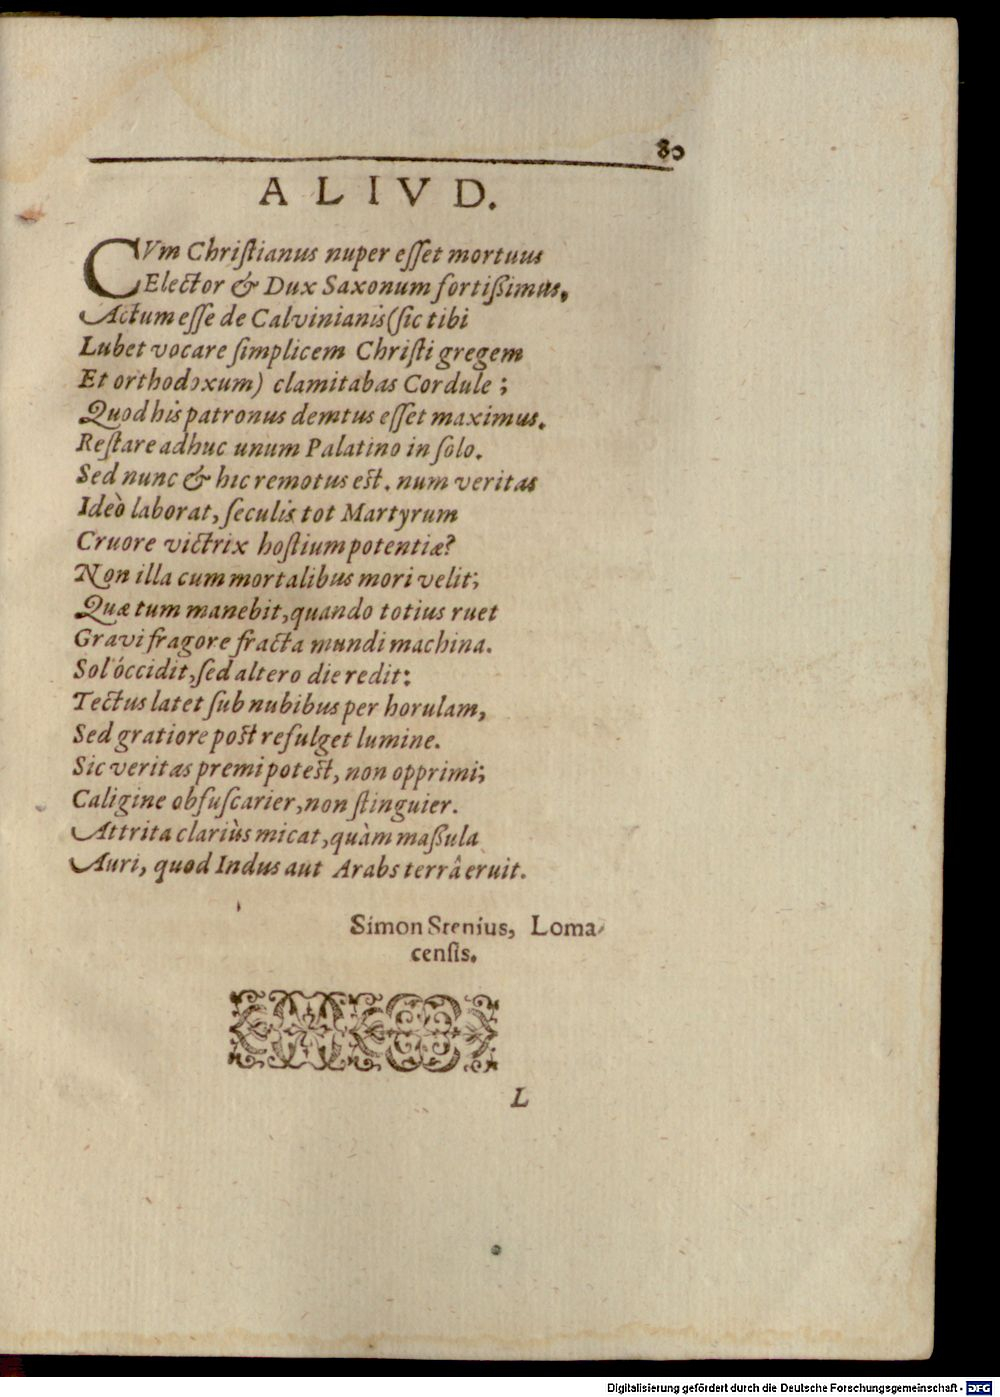 80
ALIVD.
CVm Chriſtianus nuper eſſet mortuus
Elector & Dux Saxonum fortißimus,
Actum eſſe de Calvinianis (ſic tibi
Lubet vocare ſimplicem Chriſti gregem
Et orthodoxum) clamitabas Cordule;
Quod his patronus demtus eſſet maximus.
Reſtare adhuc unum Palatino in ſolo.
Sed nunc & hic remotus eſt. num veritas
Ideò laborat, ſeculis tot Martyrum
Cruore victrix hoſtium potentiæ?
Non illa cum mortalibus mori velit;
Quæ tum manebit, quando totius ruet
Gravi fragore fracta mundi machina.
Sol óccidit, ſed altero die redit:
Tectus latet ſub nubibus per horulam,
Sed gratiore poſt refulget lumine.
Sic veritas premi poteſt, non opprimi;
Caligine obfuſcarier, non ſtinguier.
Attrita clariùs micat, quàm maßula
Auri, quod Indus aut Arabs terrâ eruit.
Simon Stenius, Loma-
cenſis.
L
Digitalisierung gefördert durch die Deutsche Forschungsgemeinschaft - DFG